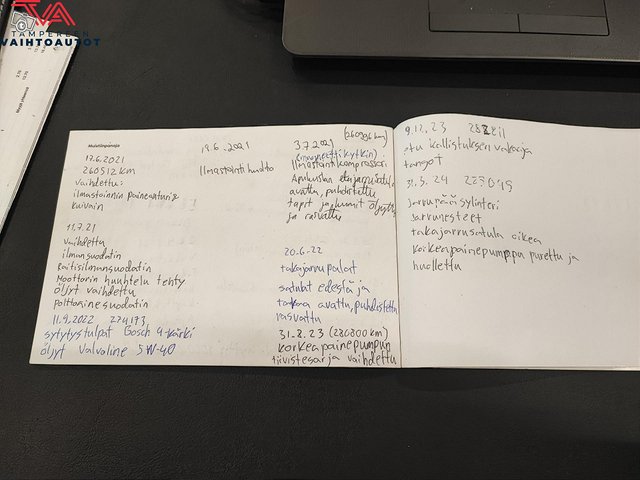 TVA
TAMPEREEN
VAIHTOAUTOT
Muistiinpanoja
17.6.2021
260512 KM
vaihdettu:
ilmastoinnin paineanturi &
kuivain
11.7.21
Vaihdettu
ilmansuodatin
Raitisilmansuodatin
Moottorin huuhtelu tehty
öljyt vaihdettu
Polttoainesuodatin
11.9.2022 274173
sytytystulpat Bosch 4-kärki
öljyt Valvoline 5W-40
19.6.2021
Ilmastointihuolto
3.7.2021
(magneettikytkin)
Ilmastointikompressori
Apukuskin etujarrusatula
avattu, puhdistettu
tapit ja kumit öljytty
ja rasvattu
20.6.22
takajarrupalat
satulat edestä ja
takaa avattu, puhdistettu
rasvattu
31.8.23 (280800 km)
korkeapainepumpun
tiivistesarja vaihdettu
9.12.23
etu kallistuksen vakaaja
tangot
31.5.24
Jarrupääsylinteri
Jarrunesteet
takajarrusatula oikea
korkeapainepumppu purettu ja
huollettu